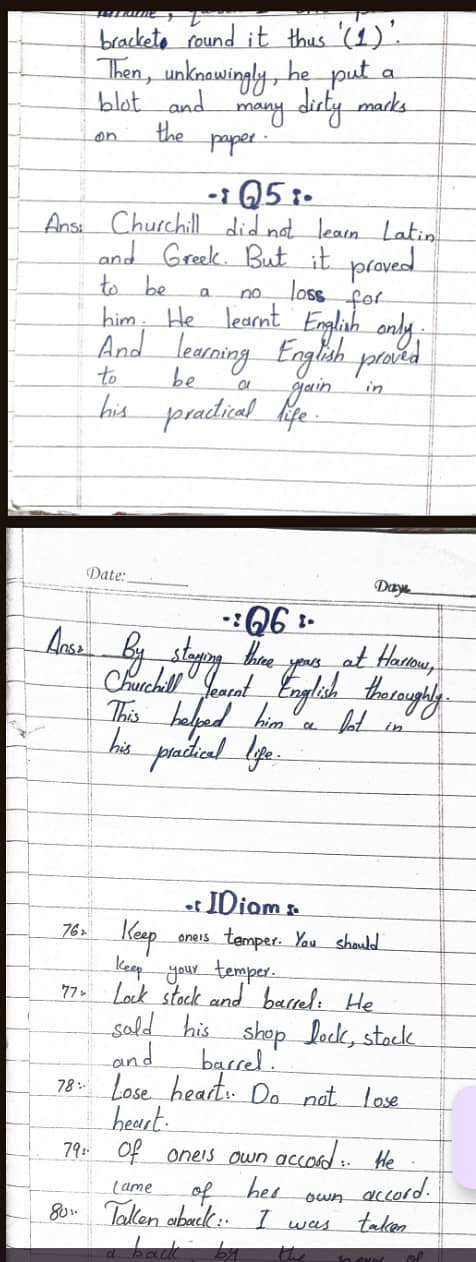 bracket round it thus '(1)'.
Then, unknowingly, he put a
blot and many dirty marks
on the paper.
-: Q5 :-
Ans: Churchill did not learn Latin
and Greek. But it proved
to be a no loss for
him. He learnt English only.
And learning English proved
to be a gain in
his practical life.
Date:
Day
-: Q6 :-
Ans: By staying three years at Harrow,
Churchill learnt English thoroughly.
This helped him a lot in
his practical life.
-: IDiom :-
76: Keep oneis temper. You should
keep your temper.
77: Lock stock and barrel: He
sold his shop lock, stock
and barrel.
78:- Lose heart:. Do not lose
heart.
79:- Of oneis own accord:. He
came of her own accord.
80:- Taken aback:. I was taken
a back by the